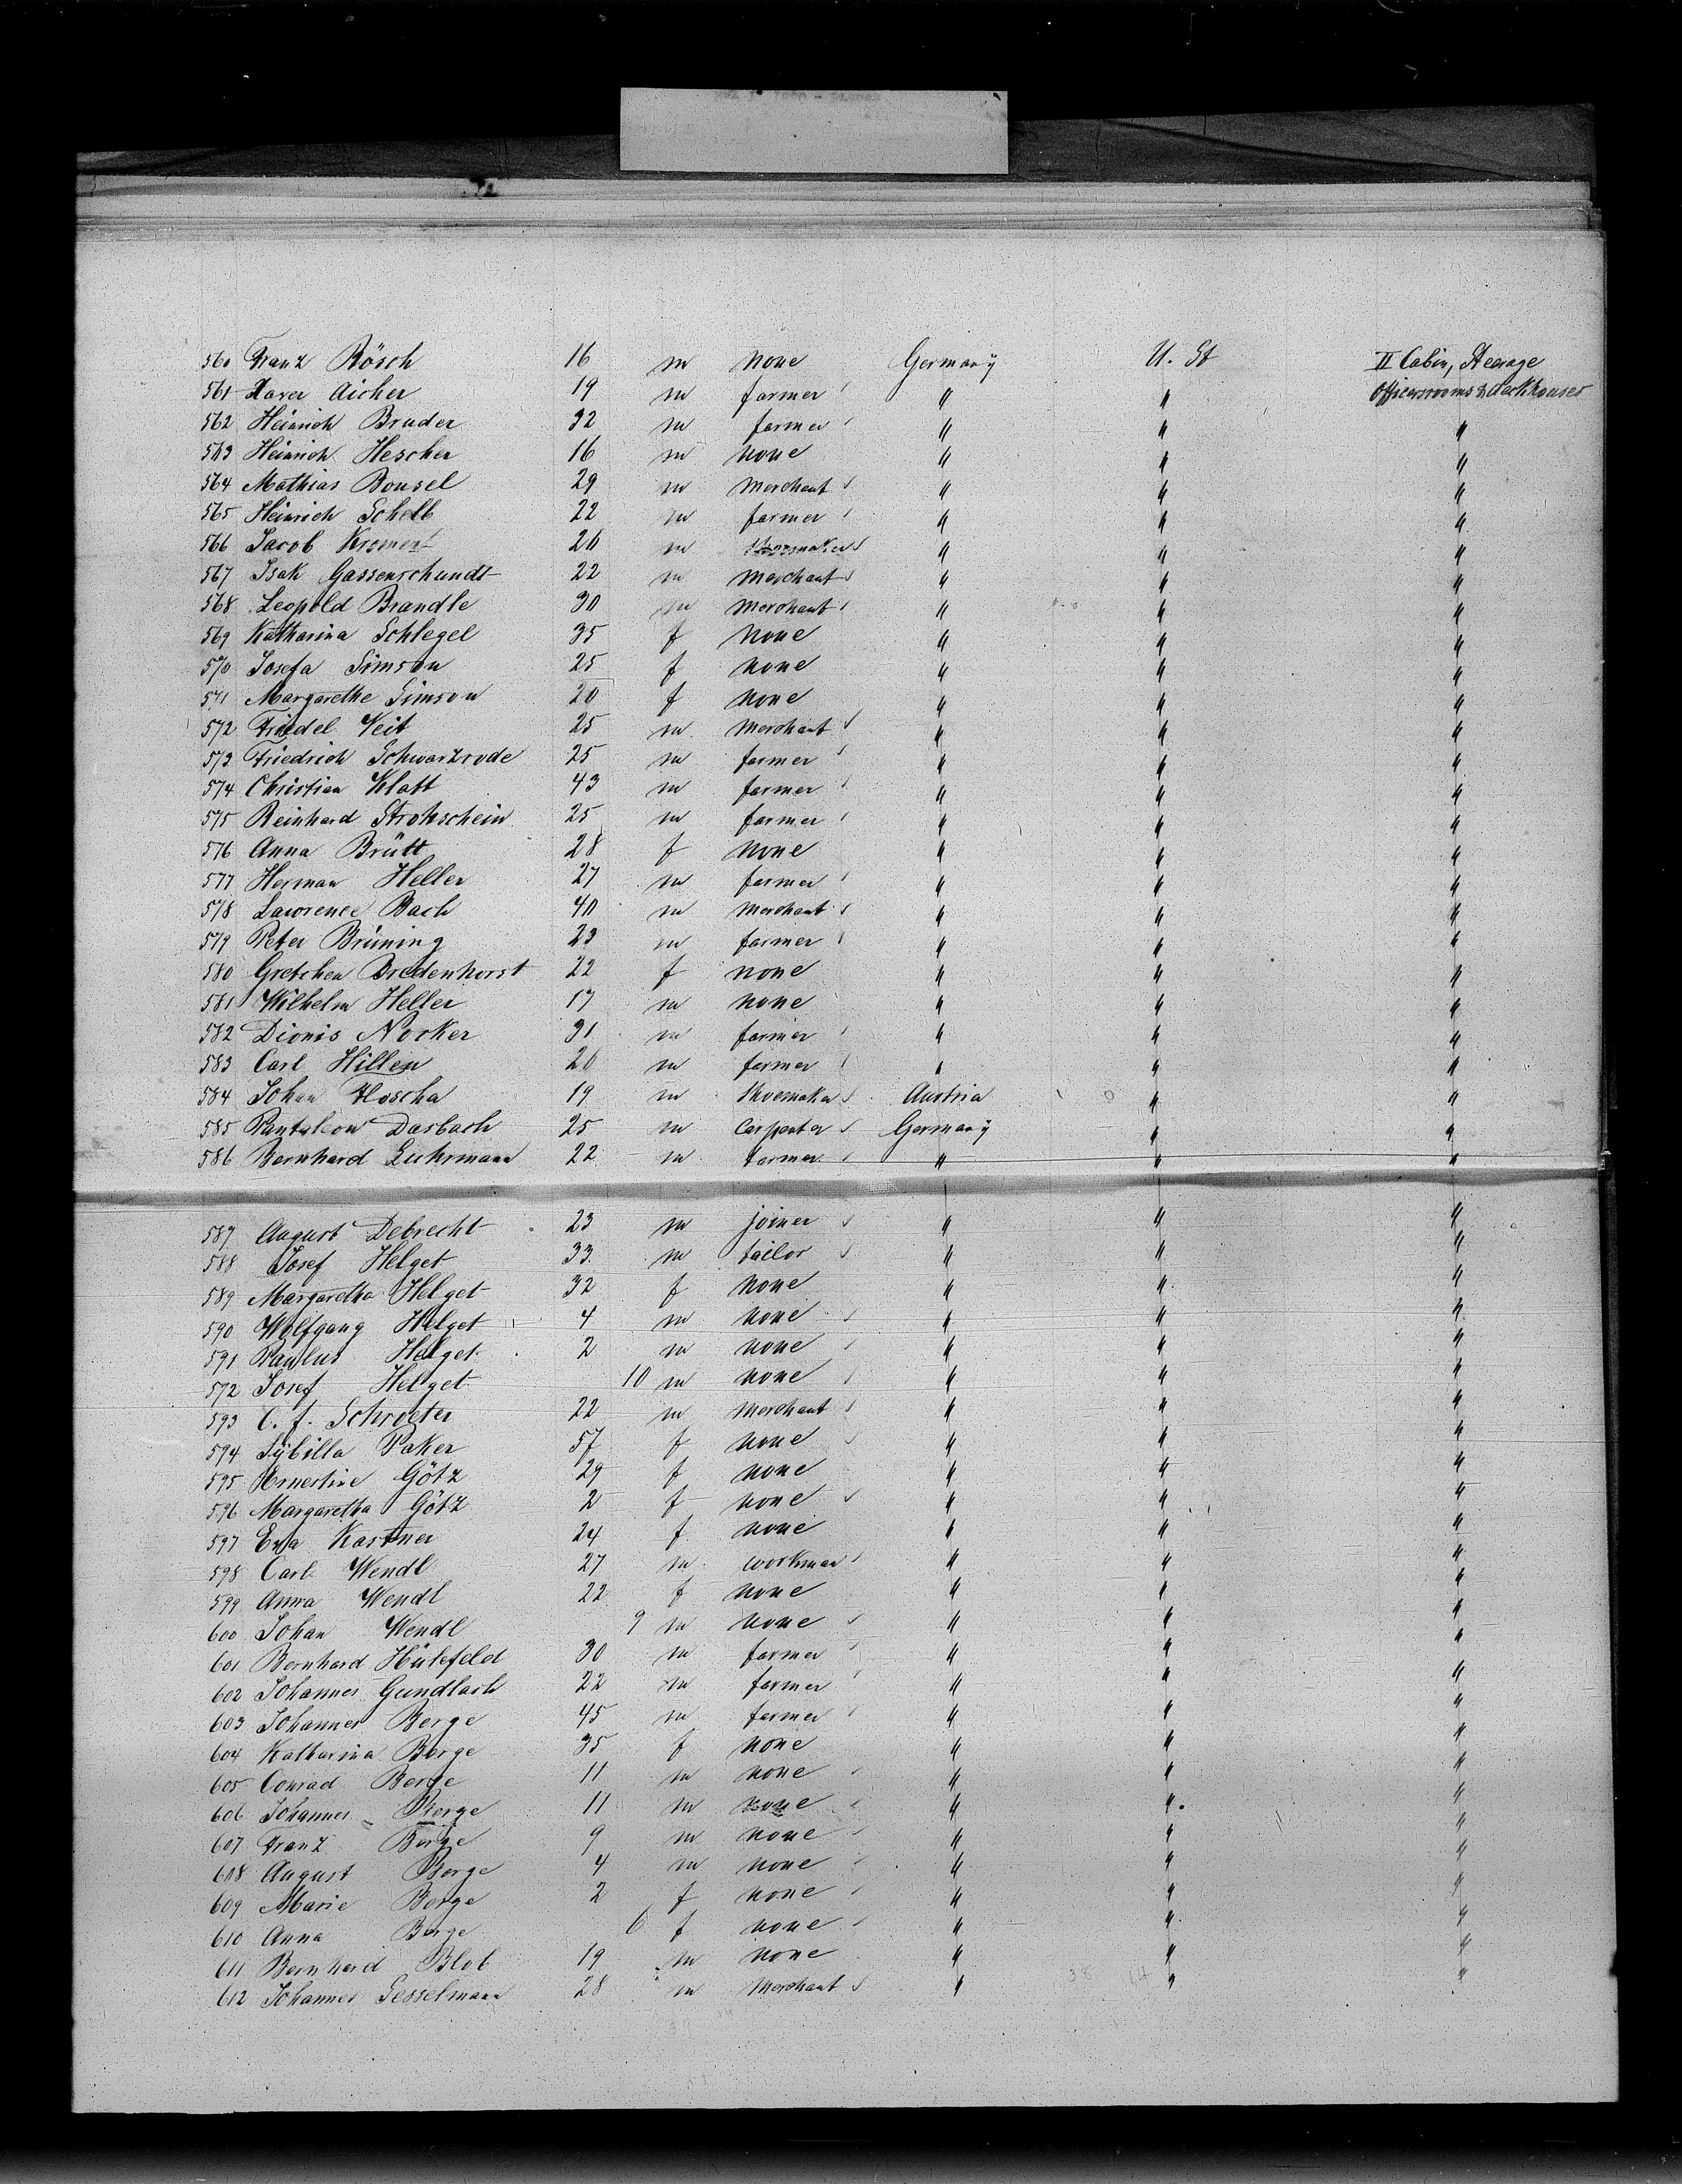 560 Franz Rösch 16 m none Germany U. St II Cabin, Steerage
561 Xaver Aicher 19 m farmer " " Officersrooms & deckhouses
562 Heinrich Bruder 32 m farmer " " "
563 Heinrich Hescher 16 m none " " "
564 Mathias Bousel 29 m Merchant " " "
565 Heinrich Schelb 22 m farmer " " "
566 Jacob Kromer 26 m Shoemaker " " "
567 Isak Gassenschundt 22 m Merchant " " "
568 Leopold Brandle 30 m Merchant " " "
569 Katharina Schlegel 35 f none " " "
570 Josefa Simson 25 f none " " "
571 Margarethe Simson 20 f none " " "
572 Friedel Veit 25 m Merchant " " "
573 Friedrich Schwarzrode 25 m farmer " " "
574 Christian Klatt 43 m farmer " " "
575 Reinhard Strohschein 25 m farmer " " "
576 Anna Brütt 28 f none " " "
577 Herman Heller 27 m farmer " " "
578 Lawrence Bach 40 m Merchant " " "
579 Peter Brüning 23 m farmer " " "
580 Gretchen Bredenhorst 22 f none " " "
581 Wilhelm Heller 17 m none " " "
582 Dionis Nocker 31 m farmer " " "
583 Carl Hillen 26 m farmer " " "
584 Johan Hoscha 19 m Shoemaker Austria " "
585 Pantaleon Dasbach 25 m Carpenter Germany " "
586 Bernhard Luhrmann 22 m farmer " " "
587 August Debrecht 23 m joiner " " "
588 Josef Helget 33 m tailor " " "
589 Margaretha Helget 32 f none " " "
590 Wolfgang Helget 4 m none " " "
591 Paulus Helget 2 m none " " "
572 Josef Helget 10 m none " " "
593 C. f. Schroeter 22 m Merchant " " "
594 Sÿbilla Paker 57 f none " " "
595 Ernestine Götz 29 f none " " "
596 Margaretha Götz 2 f none " " "
597 Eva Kastner 24 f none " " "
598 Carl Wendl 27 m workman " " "
599 Anna Wendl 22 f none " " "
600 Johan Wendl 9 m none " " "
601 Bernhard Hülefeld 30 m farmer " " "
602 Johannes Gundlach 22 m farmer " " "
603 Johannes Berge 45 m farmer " " "
604 Katharina Berge 35 f none " " "
605 Conrad Berge 11 m none " " "
606 Johannes Berge 11 m none " " "
607 Franz Berge 9 m none " " "
608 August Berge 4 m none " " "
609 Marie Berge 2 f none " " "
610 Anna Berge 6 f none " " "
611 Bernhard Blob 19 m none " " "
612 Johannes Gesselmann 28 m Merchant " " "